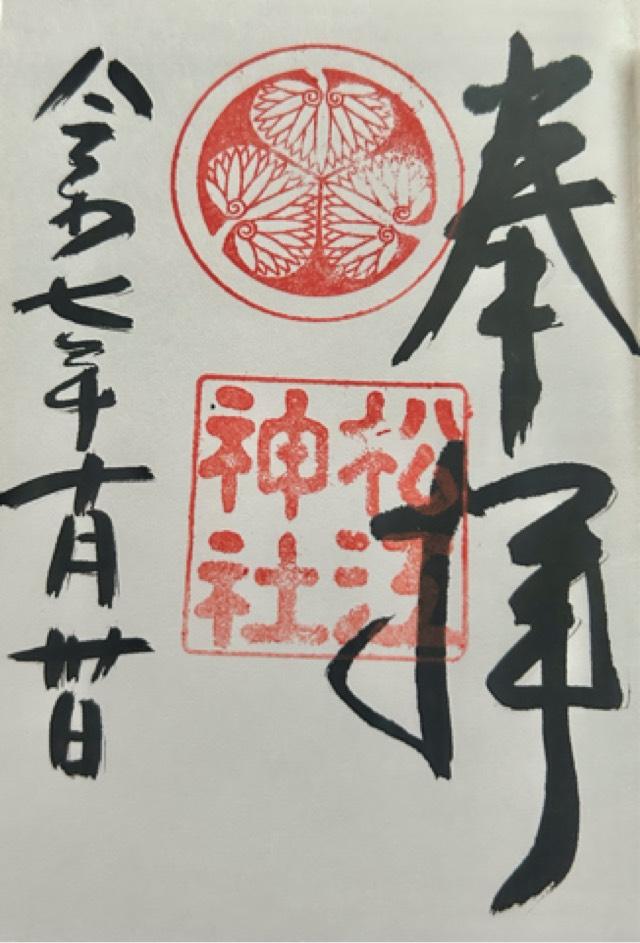 奉拝
松江
神社
令和七年十月卅日